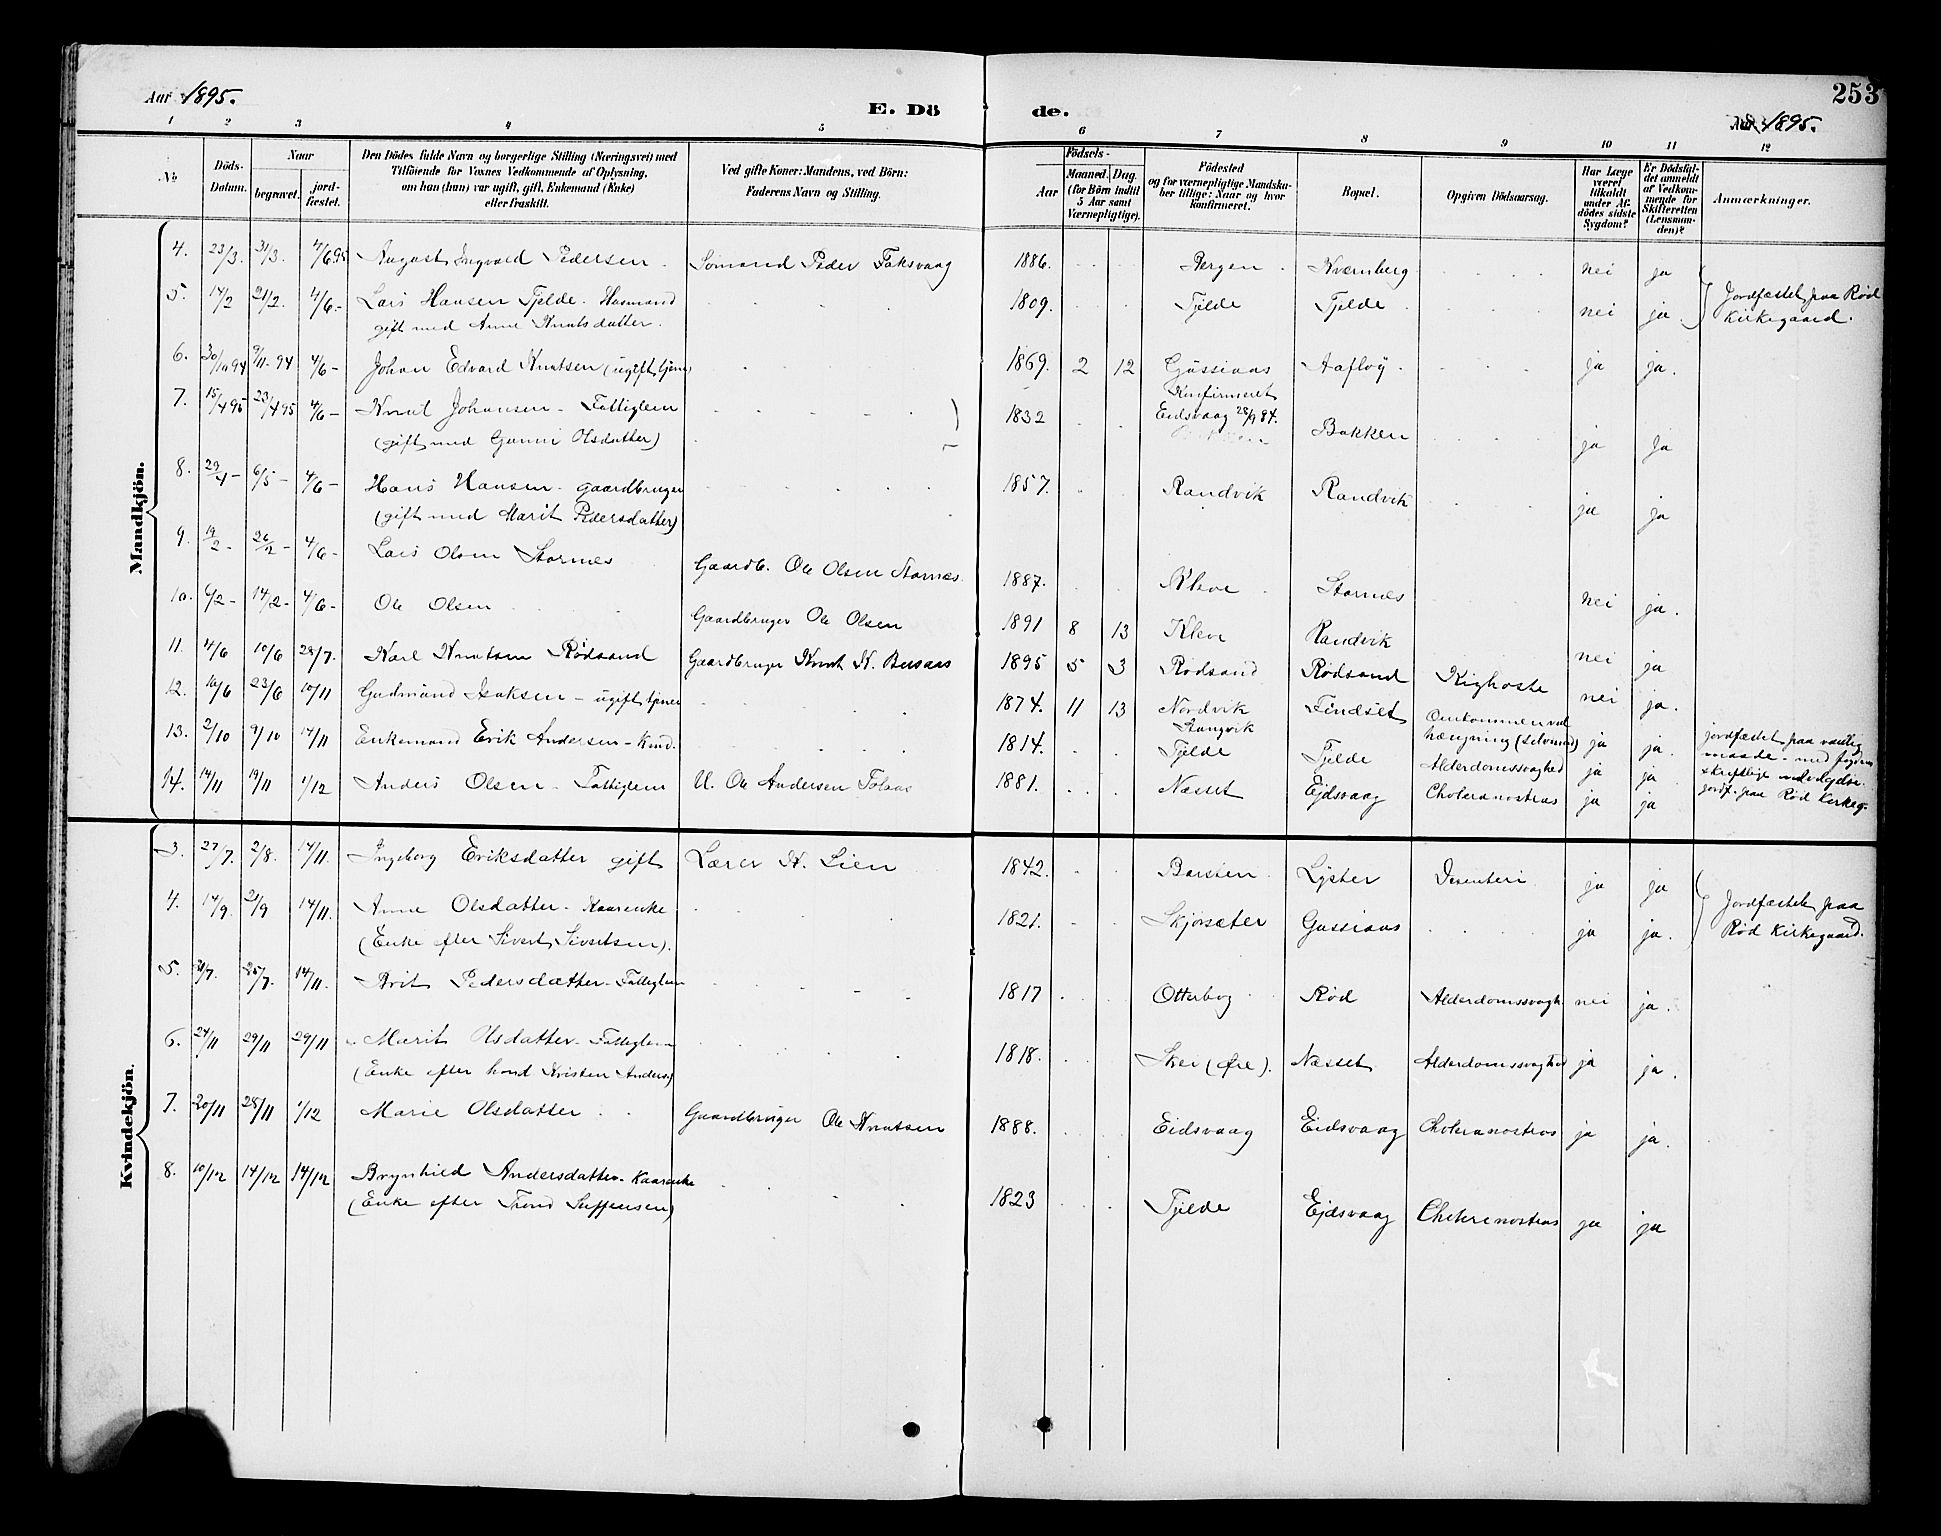 Aar 1895.
E. Dö
de.
253
Aar 1895.
1 2 3 4 5 6 7 8 9 10 11 12
No
Döds-Datum.
Naar
begravet.
jord-fæstet.
Den Dödes fulde Navn og borgerlige Stilling (Næringsvei) med
Tilföiende for Voxnes Vedkommende af Oplysning,
om han (hun) var ugift, gift, Enkemand (Enke)
eller fraskilt.
Ved gifte Koner: Mandens, ved Börn:
Faderens Navn og Stilling.
Födsels-
Aar
Maaned. Dag.
(for Börn indtil
5 Aar samt
Værnepligtige).
Födested
og for værnepligtige Mandska-
ber tillige: Naar og hvor
konfirmeret.
Bopæl.
Opgiven Dödsaarsag.
Har Læge
været
tilkaldt
under Af-
dödes sidste
Sygdom?
Er Dödsfal-
det anmeldt
af Vedkom-
mende for
Skifteretten
(Lensman-
den)?
Anmærkninger.
Mandkjön.
4. 23/3. 31/3. 4/6 95 August Ingvald Pedersen Sømand Peder Faksvaag 1886. Bergen Kvernberg nei ja
5. 14/2 21/2. 4/6- Lars Hansen Tjelde. Husmand 1809. Tjelde Tjelde nei ja. Jordfæstet paa Rød
gift med Anne Knutsdatter. Kirkegaard.
6. 30/10 94 9/11-94 4/6- Johan Edvard Knutsen (ugift tjener) 1869. 2 12 Gussiaas Aafløy. ja ja.
Konfirmeret
Eidsvaag 28/9 84.
7. 15/4 95 23/4 95 4/6- Knut Johansen - Fattiglem 1832 Bakken Bakken ja ja
(gift med Gunni Olsdatter)
8. 29/4- 6/5- 4/6- Hans Hansen - gaardbruger 1857. Randvik Randvik ja ja
(gift med Marit Pedersdatter)
9. 19/2- 26/2- 4/6- Lars Olsen Stornes Gaardb. Ole Olsen Stornes 1887. Kleve Stornes nei ja.
10. 6/2- 14/2- 4/6- Ole Olsen Gaardbruger Ole Olsen 1891 8 13 Kleve Randvik nei ja
11. 4/6 10/6 28/7. Karl Knutsen Rødsand Gaardbruger Knut K. Bersaas 1895 5 3 Rødsand Rødsand Kighoste nei ja.
12. 16/6 23/6 10/11 Gudmund Isaksen - ugift tjener 1874. 11 13 Nordvik Tindset Omkommen ved
Stangvik hængning (Selvmord) ja ja. jordfæstet paa vanlig
13. 2/10 9/10 14/11 Enkemand Erik Andersen - Kaard. 1814. Tjelde Tjelde Alderdomssvaghed ja ja maade - med fogdens
skriftlige indvilgelse.
14. 14/11 19/11 1/12 Anders Olsen - Fattiglem U. Ole Andersen Tolaas 1881. Næsset Ejdsvaag Cholera nostras ja ja jordf. paa Rød Kirkeg.
Kvindekjön.
3. 27/7. 2/8. 14/11. Ingeborg Eriksdatter gift Lærer K. Lien 1842. Barsten Lyster Desenteri ja ja
4. 14/9. 2/9 14/11. Anne Olsdatter - Kaarenke 1821. Skjørsæter Gussiaas ja ja. Jordfæstet paa
(Enke efter Sivert Sivertsen). Rød Kirkegaard.
5. 21/7. 25/7. 14/11. Brit Pedersdatter - Fattiglem 1817 Otterbog Rød Alderdomssvagh. nei ja.
6. 24/11 29/11 29/11 Marit Olsdatter - Fattiglem 1818. Skei (Øre). Næsset Alderdomssvaghed ja ja.
(Enke efter hmd Kristen Anders.)
7. 20/11 28/11 1/12 Marie Olsdatter Gaardbruger Ole Knutsen 1888. Eidsvaag Eidsvaag Cholera nostras ja ja.
8. 10/12 14/12 14/12 Brynhild Andersdatter - Kaarenke 1823 Tjelde Ejdsvaag Cholera nostras ja ja
(Enke efter Trond Steffensen)